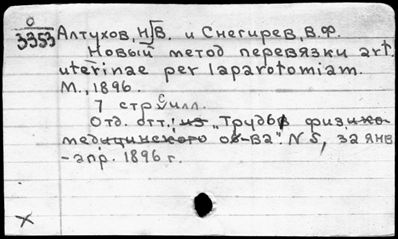 0
3353
Алтухов, Н.В. и Снегирев, В.Ф.
Новый метод перевязки art.
uterinae per laparotomiam.
М., 1896.
7 стр. с илл.
Отд. отт.: из "Трудов физико-
медицинского об-ва". N 5, за янв.
-апр. 1896 г.